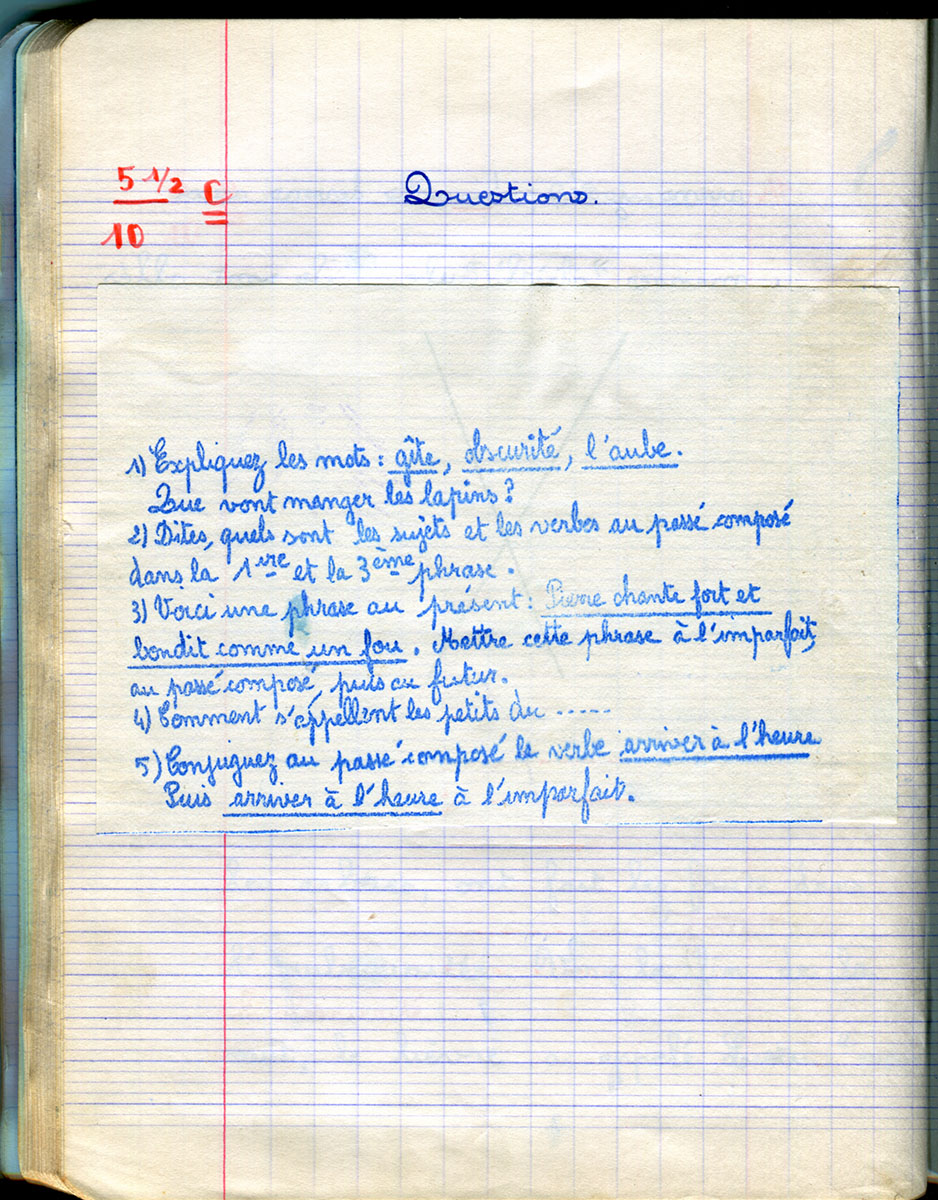 5 1/2 C
10
Questions.
1) Expliquez les mots : gîte, obscurité, l'aube.
Que vont manger les lapins ?
2) Dites, quels sont les sujets et les verbes au passé composé
dans la 1ère et la 3ème phrase.
3) Voici une phrase au présent : Pierre chante fort et
bondit comme un fou. Mettre cette phrase à l'imparfait,
au passé composé, puis au futur.
4) Comment s'appellent les petits du .....
5) Conjuguez au passé composé le verbe arriver à l'heure
Puis arriver à l'heure à l'imparfait.